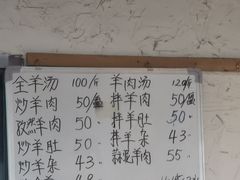 全羊汤 100/斤 羊肉汤 120/斤
炒羊肉 50/盘 拌羊肉 50/盘
孜然羊肉 50 〃 拌羊肚 50 〃
炒羊肚 50 〃 拌羊杂 43 〃
炒羊杂 43 〃 蒜泥羊肉 55 〃